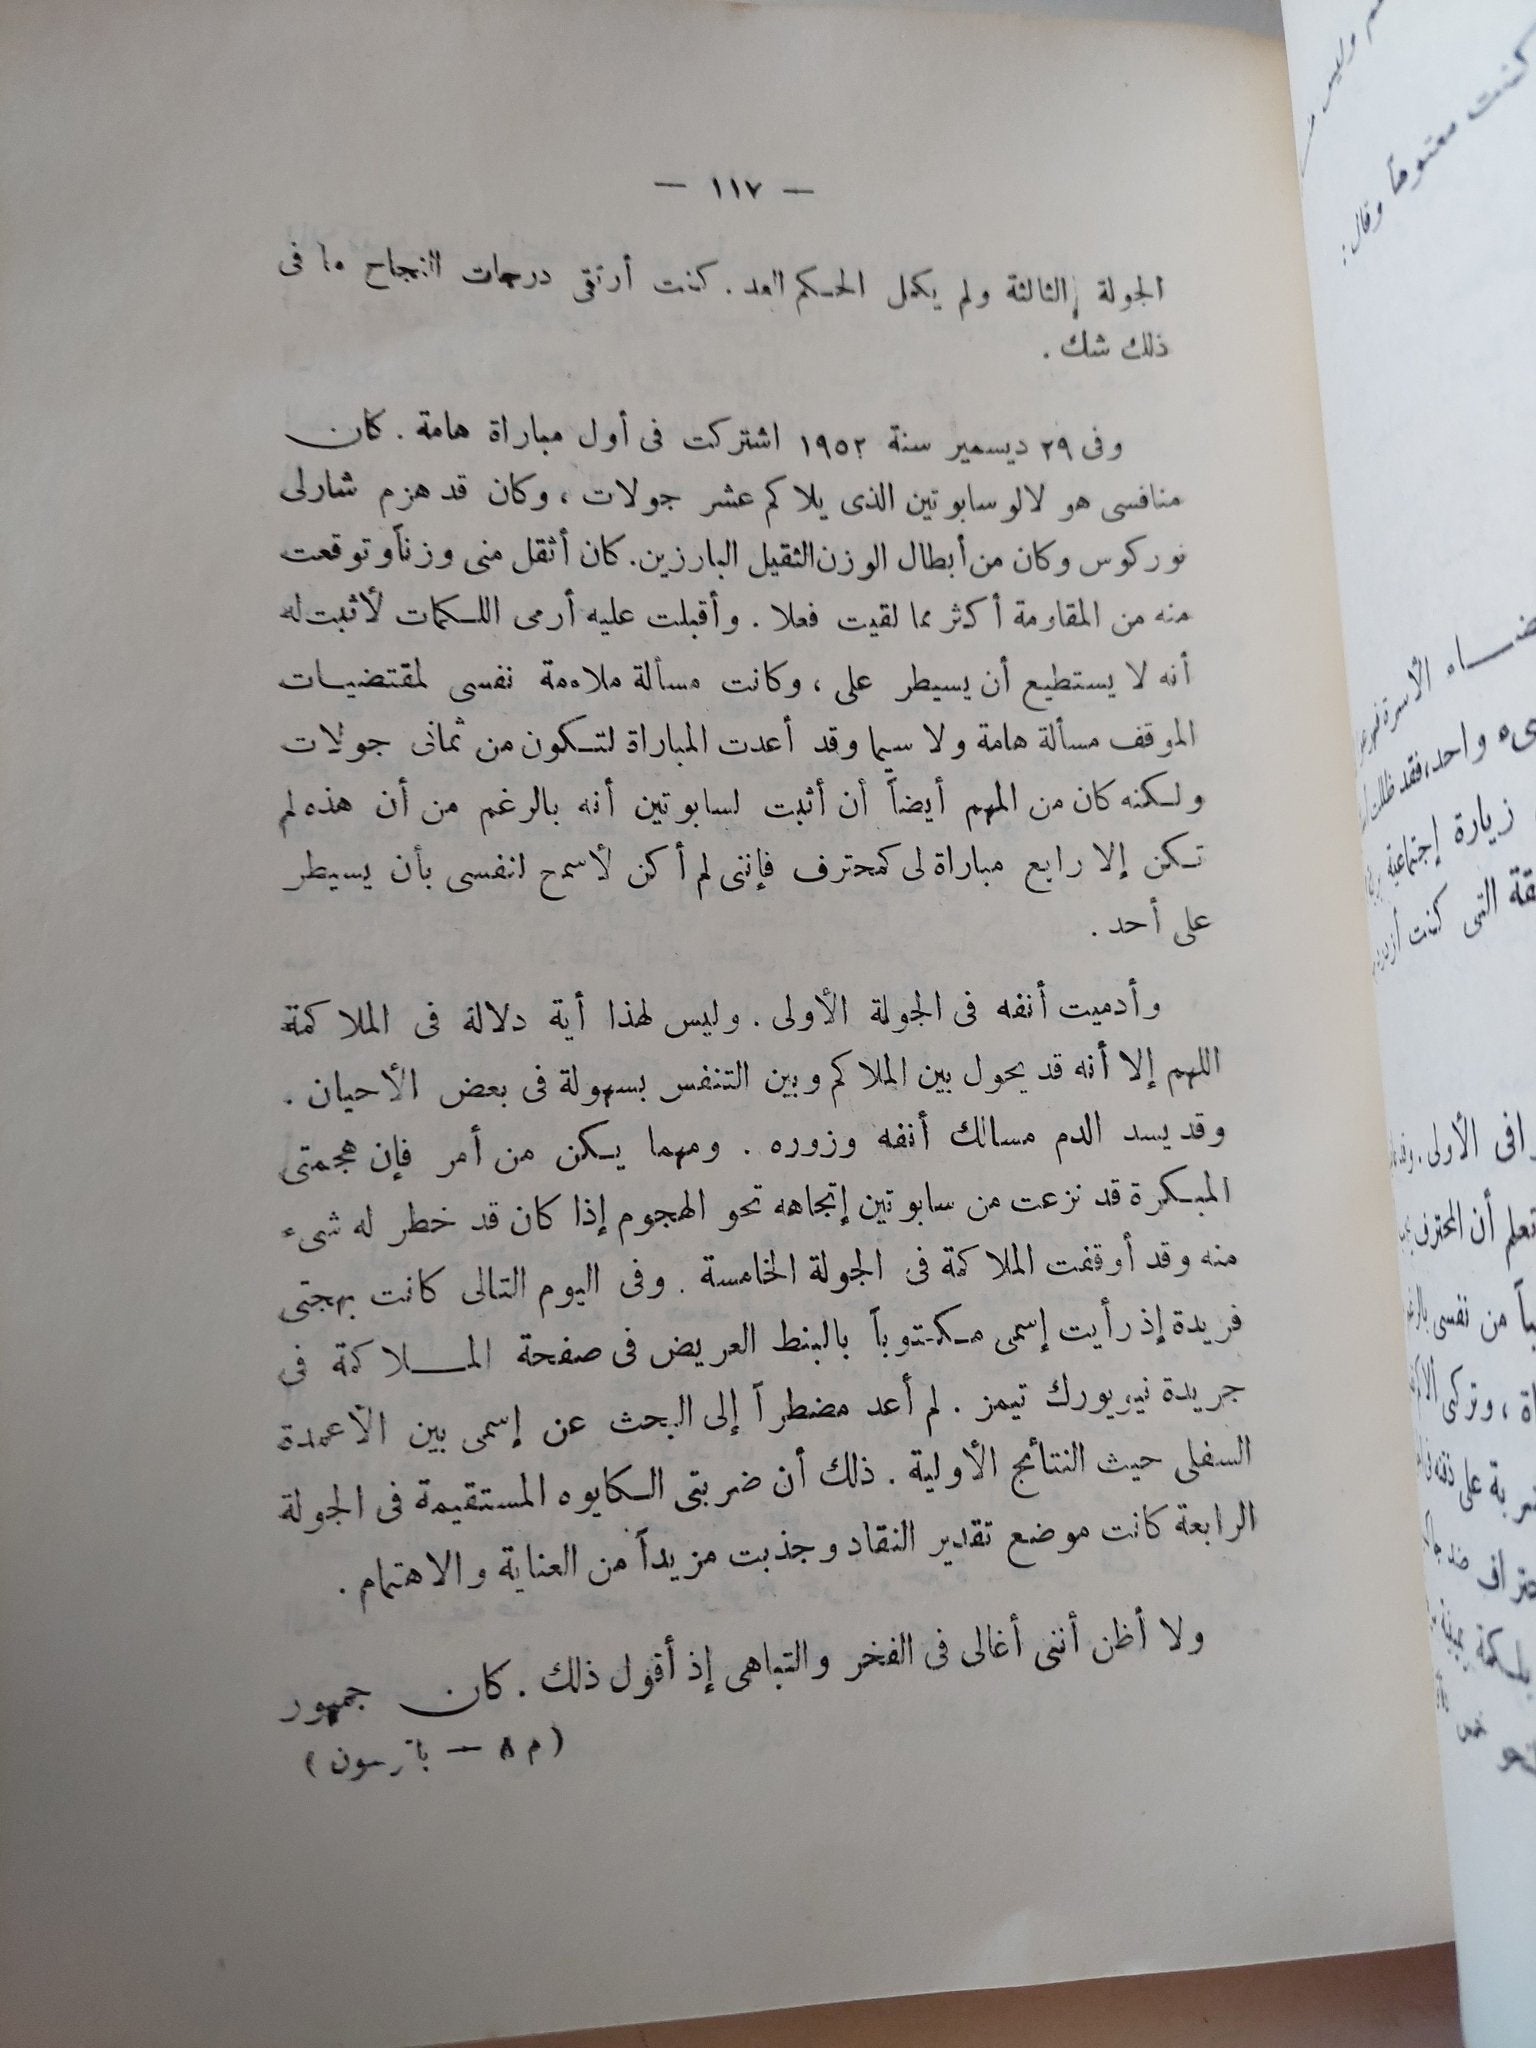 — ١١٧ —
الجولة الثالثة ولم يكمل الحكم العد . كنت أرتقى درجات النجاح ما فى
ذلك شك .
وفى ٢٩ ديسمبر سنة ١٩٥٢ اشتركت فى أول مباراة هامة . كان
منافسى هو لالو سابوتين الذى يلاكم عشر جولات ، وكان قد هزم شارلى
نوركوس وكان من أبطال الوزن الثقيل البارزين . كان أثقل منى وزناً وتوقعت
منه من المقاومة أكثر مما لقيت فعلا . وأقبلت عليه أرمى اللكمات لأثبت له
أنه لا يستطيع أن يسيطر على ، وكانت مسألة ملاءمة نفسى لمقتضيات
الموقف مسألة هامة ولا سيما وقد أعدت المباراة لتكون من ثمانى جولات
ولكنه كان من المهم أيضاً أن أثبت لسابوتين أنه بالرغم من أن هذه لم
تكن إلا رابع مباراة لى كمحترف فإننى لم أكن لأسمح لنفسى بأن يسيطر
على أحد .
وأدميت أنفه فى الجولة الأولى . وليس لهذا أية دلالة فى الملاكمة
اللهم إلا أنه قد يحول بين الملاكم وبين التنفس بسهولة فى بعض الأحيان .
وقد يسد الدم مسالك أنفه وزوره . ومهما يكن من أمر فإن هجمتى
المبكرة قد نزعت من سابوتين إتجاهه نحو الهجوم إذا كان قد خطر له شىء
منه وقد أوقفت الملاكمة فى الجولة الخامسة . وفى اليوم التالى كانت بهجتى
فريدة إذ رأيت إسمى مكتوباً بالبنط العريض فى صفحة الملاكمة فى
جريدة نيويورك تيمز . لم أعد مضطراً إلى البحث عن إسمى بين الأعمدة
السفلى حيث النتائج الأولية . ذلك أن ضربتى الكايوه المستقيمة فى الجولة
الرابعة كانت موضع تقدير النقاد وجذبت مزيداً من العناية والاهتمام .
ولا أظن أننى أغالى فى الفخر والتباهى إذ أقول ذلك . كان جمهور
(م ٨ — باترسون)
كنت معتوهاً وقال :
الأسرة
واحد ، فقد ظللت
زيارة إجتماعية
التى كنت
الأولى .
تعلم أن المحترف
من نفسى
، وتركى
على ذقنه